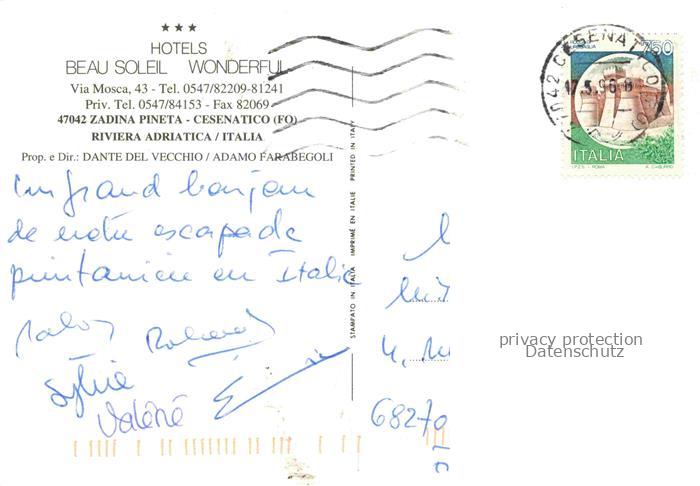 ★★★
HOTELS
BEAU SOLEIL WONDERFUL
Via Mosca, 43 - Tel. 0547/82209-81241
Priv. Tel. 0547/84153 - Fax 82069
47042 ZADINA PINETA - CESENATICO (FO)
RIVIERA ADRIATICA / ITALIA
Prop. e Dir.: DANTE DEL VECCHIO / ADAMO FARABEGOLI
un grand bonjour
de notre escapade
printanière en Italie
Roland
Sylvie
Valérie
STAMPATO IN ITALIA IMPRIMÉ EN ITALIE PRINTED IN ITALY
4,
68270
47042 CESENATICO
17.5.96-8
750
ITALIA
I.P.Z.S. - ROMA
privacy protection
Datenschutz